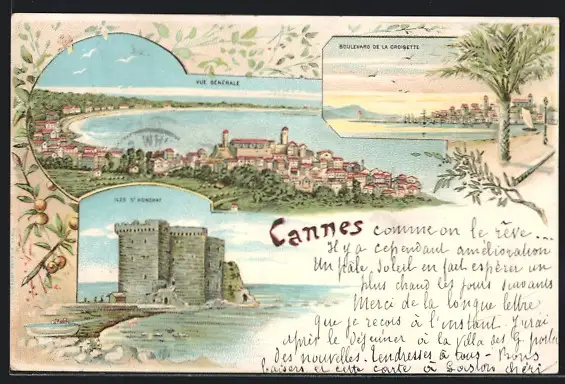 VUE GÉNÉRALE
BOULEVARD DE LA CROISETTE
ILES ST HONORAT
Cannes comme on le rêve...
Il y a cependant amélioration
Un pâle soleil en fait espérer un
plus chaud les jours suivants
Merci de la longue lettre
Que je reçois à l'instant. J'irai
après le déjeuner à la villa des G. porter
des nouvelles. Tendresses à tous - Bons
baisers et cette carte à Gaston chéri